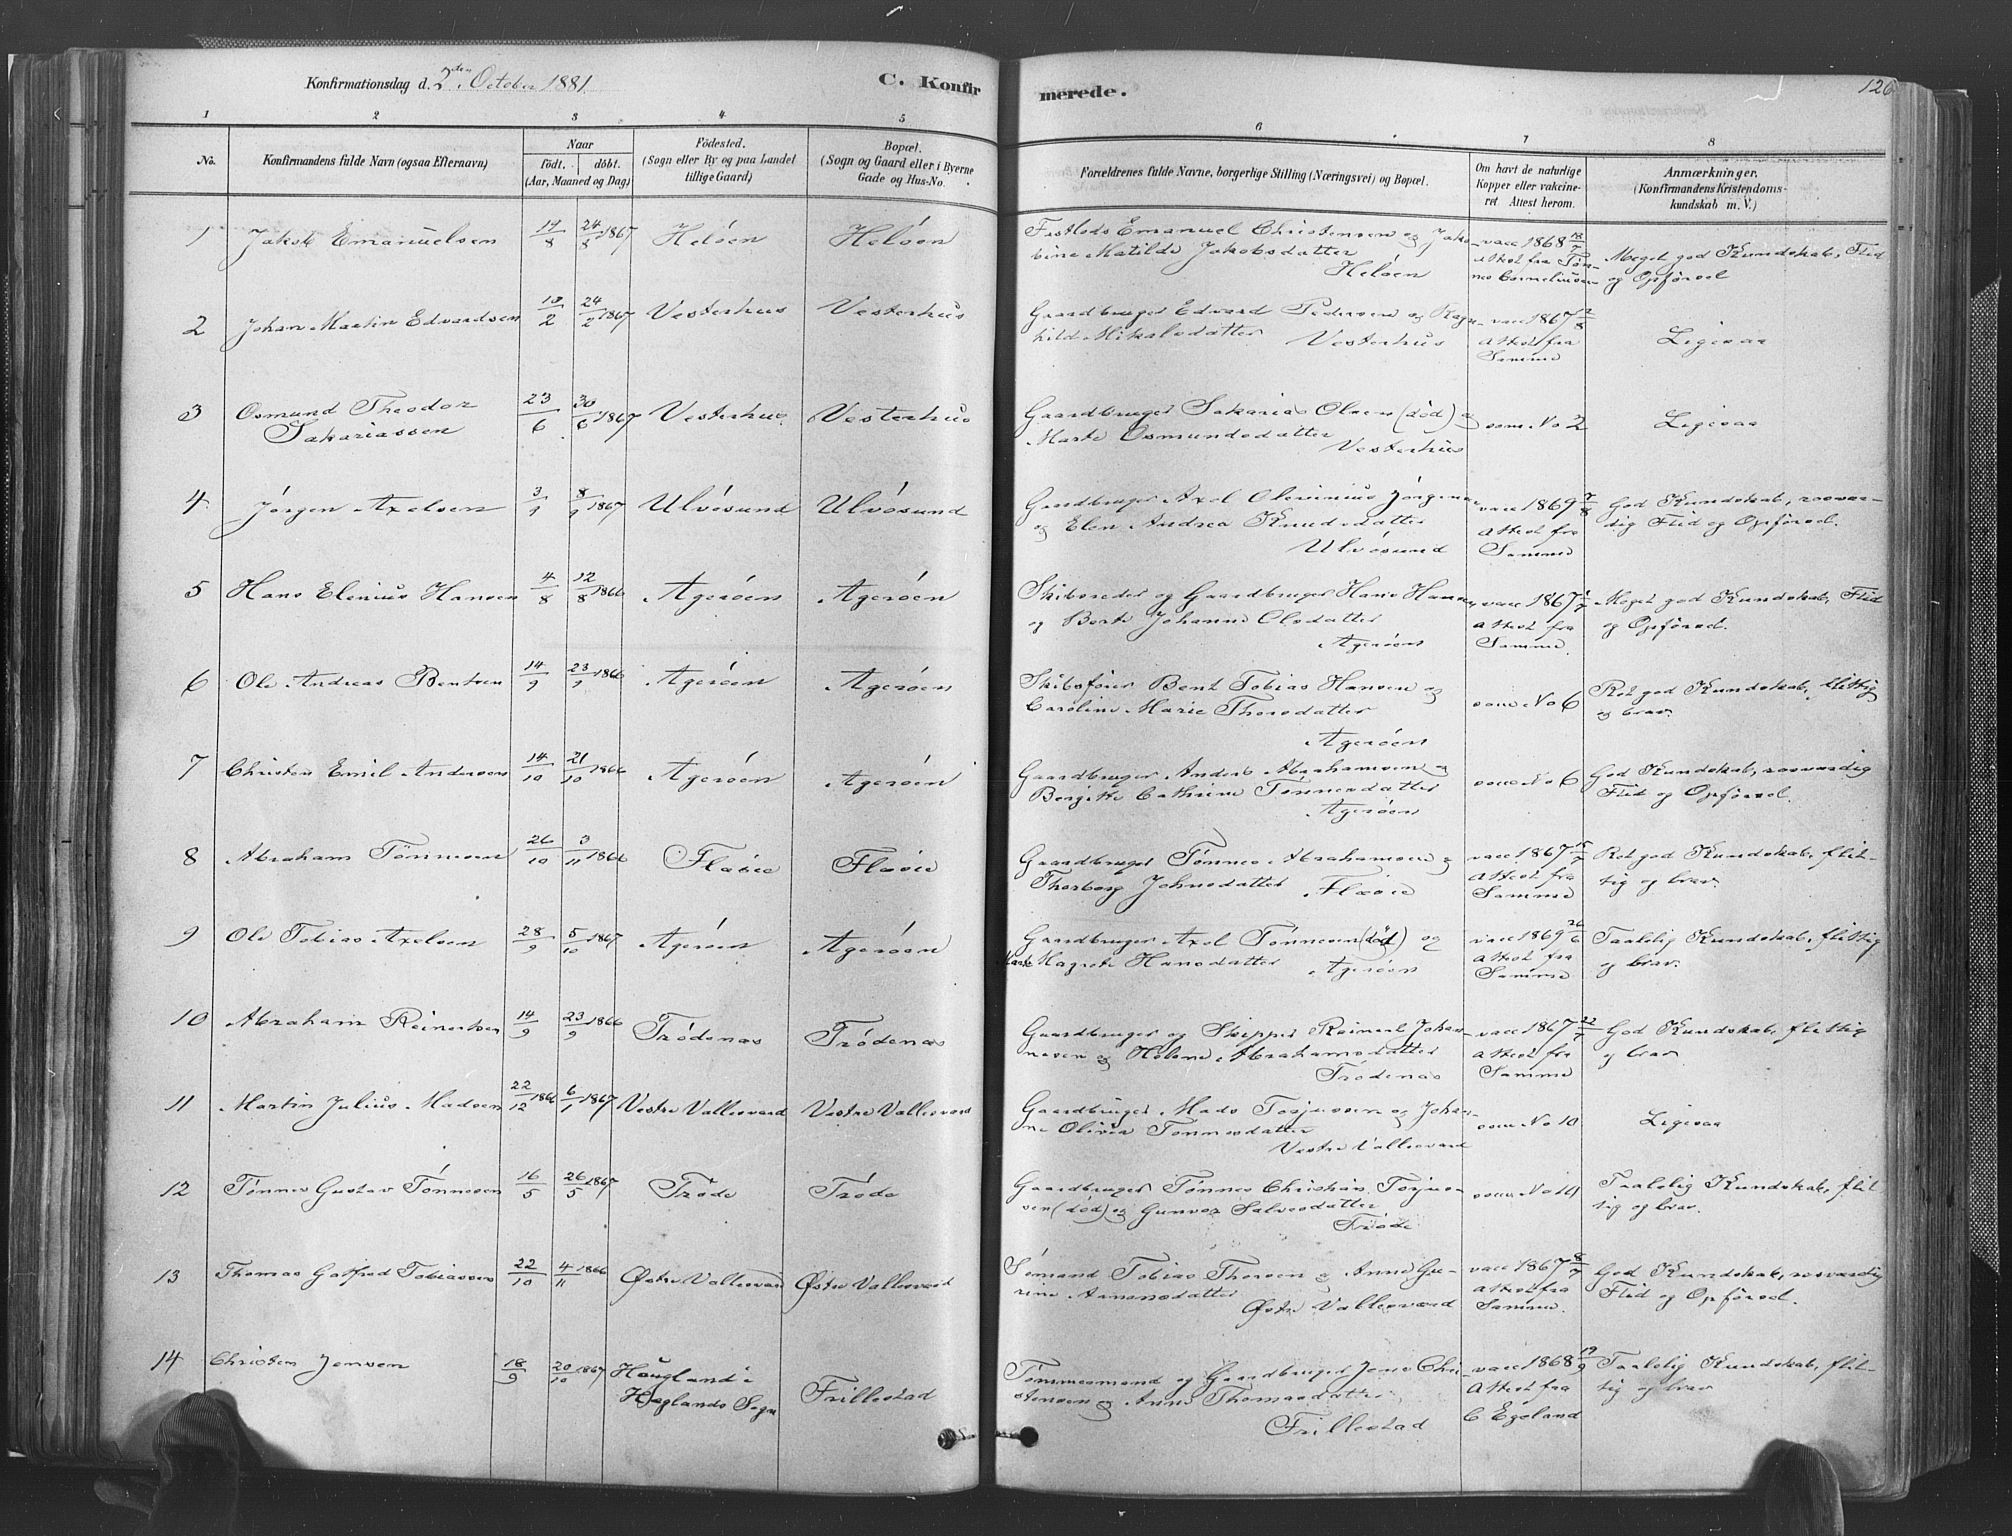 Konfirmationsdag d. 2den October 1881.
C. Konfirmerede.
126
1 2 3 4 5 6 7 8
No.
Konfirmandens fulde Navn (ogsaa Efternavn)
Naar
født. døbt.
(Aar, Maaned og Dag)
Födested.
(Sogn eller By og paa Landet
tillige Gaard)
Bopæl.
(Sogn og Gaard eller i Byerne
Gade og Hus-No.
Forældrenes fulde Navne, borgerlige Stilling (Næringsvei) og Bopæl.
Om havt de naturlige
Kopper eller vakcine-
ret Attest herom.
Anmærkninger.
(Konfirmandens Kristendoms-
kundskab m. V.)
1 Jakob Emanuelsen 17/8 24/8 1867 Helöen Helöen
Emanuel Christensen og Jako-
bine Matilde Jakobsdatter
Helöen
vacc 1868
Attest fra Tøn-
nes Corneliussen
Meget god Kundskab, Flid
og Opförsel
2 Johan Martin Edvardsen 10/2 24/2 1867 Vesterhus Vesterhus
Gaardbruger Edvard Pedersen og Ragn-
hild Mikalsdatter
Vesterhus
vacc 1867 2/8
Attest fra
Samme
Ligesaa
3 Osmund Theodor
Sakariassen
23/6 30/6 1867 Vesterhus Vesterhus
Gaardbruger Sakarias Olsen (död) og
Marte Osmundsdatter
Vesterhus
som No 2
Ligesaa
4 Jörgen Axelsen 3/9 8/9 1867 Ulvösund Ulvösund
Gaardbruger Axel Olevinius Jörgensen
og Elen Andrea Knudsdatter
Ulvösund
vacc 1869 7/8
Attest fra
Samme
God Kundskab, rosvær-
dig Flid og Opförsel.
5 Hans Elenius Hansen 4/8 12/8 1866 Ageröen Ageröen
Skibsreder og Gaardbruger Hans Hansen
og Berte Johanne Olsdatter
Ageröen
vacc 1867 1/7
Attest fra
Samme.
Meget god Kundskab, Flid
og Opförsel.
6 Ole Andreas Bentsen 14/9 23/9 1866 Ageröen Ageröen
Skibsförer Bent Tobias Hansen og
Caroline Marie Thorsdatter
Ageröen
som No 6
Ret god Kundskab, flittig
og brav.
7 Christen Emil Andersen 14/10 21/10 1866 Ageröen Ageröen
Gaardbruger Anders Abrahamsen og
Bergitte Cathrine Tönnesdatter
Ageröen
som No 6
God Kundskab, rosværdig
Flid og Opförsel.
8 Abraham Tönnesen 26/10 3/11 1866 Flaöie Flaöie
Gaardbruger Tönnes Abrahamsen og
Thorborg Johnsdatter Flaöie
vacc 1867 15/7
Attest fra
Samme
Ret god Kundskab, flit-
tig og brav.
9 Ole Tobias Axelsen 28/9 5/10 1867 Ageröen Ageröen
Gaardbruger Axel Tönnesen (död) og
Marte Magrete Hansdatter Ageröen
vacc 1869 26/6
Attest fra
Samme
Taalelig Kundskab, flittig
og brav.
10 Abraham Reinertsen 14/9 23/9 1866 Trödenas Trödenas
Gaardbruger og Skipper Reinert Johan-
nesen og Helene Abrahamsdatter
Trödenas
vacc 1867 22/7
Attest fra
Samme
God Kundskab, flittig
og brav
11 Martin Julius Madsen 22/12 1866 6/1 1867 Vestre Vallesværd Vestre Vallesværd
Gaardbruger Mads Terjussen og Johan-
ne Olivia Tönnesdatter
Vestre Vallesværd
som No 10
Ligesaa
12 Tönnes Gustav Tönnesen 16/5 26/5 1867 Tröde Tröde
Gaardbruger Tönnes Christian Terjus-
sen (död) og Gunvor Salvesdatter
Tröde
som No 10
Taalelig Kundskab, flit-
tig og brav.
13 Thomas Gotfred Tobiassen 22/10 4/11 1866 Østre Vallesværd Østre Vallesværd
Sömand Tobias Thorsen og Anne Gu-
rine Aanensdatter
Østre Vallesværd
vacc 1867 8/7
Attest fra
Samme.
God Kundskab, rosværdig
Flid og Opförsel.
14 Christen Jensen 18/9 20/10 1867 Haugland i
Høglands Sogn
Frillestad
Tömmermand og Gaardbruger Jens Chri-
stensen og Anne Thomasdatter
Frillestad
vacc 1868 19/9
Attest fra
C Egeland
Taalelig Kundskab, flit-
tig og brav